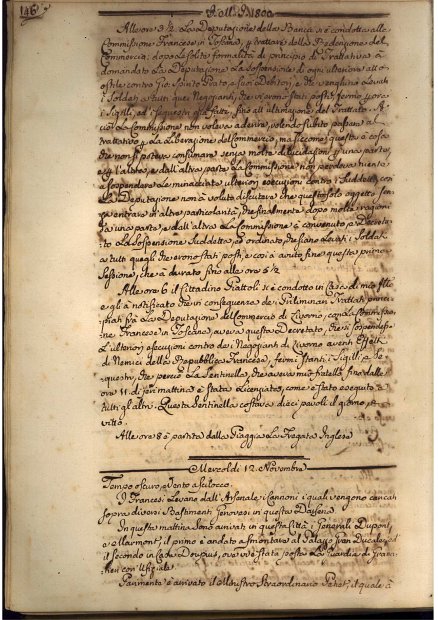 146
Alle ore 9 1/2 La Deputazione della Banca si è condotta alla
Commissione Francese in Toscana, trattare della Predazione del
Commercio; dopo le solite formalità di principio di Trattativa à
domandato La Deputazione La Sospensione di ogni ulteriore atto
ostile contro
i Soldati à tutti quei Negozianti, che vi erono stati posti, fermi
i Sigilli, ed i sequestri già fatti, fino all'ultimazione del Trattato.
La Commissione non voleva aderire, volendo subito passare al
trattato La Liberazione del Commercio, ma siccome questa è cosa
che non si poteva consumare senza molte dilucidazioni una parte,
e l'altra, e dall'altra parte La Commissione non perdeva
sospendere Le minacciate ulteriori esecuzioni contro i suddetti, così
La Deputazione non à voluto discutere che questo solo oggetto sen
za entrare in altre particolarità, che finalmente dopo molte ragioni
da una parte, e dall'altra La Commissione à convenuto, e Decreta
to La Sospensione Suddetta, ed ordinato, che siano Levati i Solda
ti à tutti quegli che erono stati posti, e così à avuto fine questa prima
Sessione, che à durato fino alle ore 5 1/2
Alle ore 6 il Cittadino Pattoli si è condotto in Casa di
e gli à notificato che in conseguenza de' Preliminari Trattati princi
piati frà La Deputazione del Commercio di Livorno, con La Commissio
ne Francese in Toscana, aveva questa Decretato, che si sospendesse
L'ulteriori esecuzioni contro de i Negozianti di Livorno aventi Effetti
di Nemici della Repubblica Francese, fermi stanti i Sigilli, e Se
questri, che perciò La Sentinella, che aveva mio fratello fino dalle
ore 11 di jeri mattina è stata Licenziata, come è stato eseguito à
tutti gl'altri. Questa Sentinella costava dieci pavoli il giorno, e
vitto
Alle ore 8 è partita dalla Piaggia La Fregata Inglese
Mercoldì 12 Novembre
Tempo oscuro, e Vento à Scilocco.
I Francesi Levano dall'Arsenale i Cannoni i quali vengono caricati
sopra diversi Bastimenti Genovesi in questa Darsena
In questa mattina sono arrivati in questa Città i Generali Dupont,
e Marmont, il primo è andato à smontare al Palazzo
il secondo in Casa ove v'è stata posta La Guardia di Grana
tieri con Uffiziale
Parimente è arrivato il Ministro Straordinario Petiet, il quale à